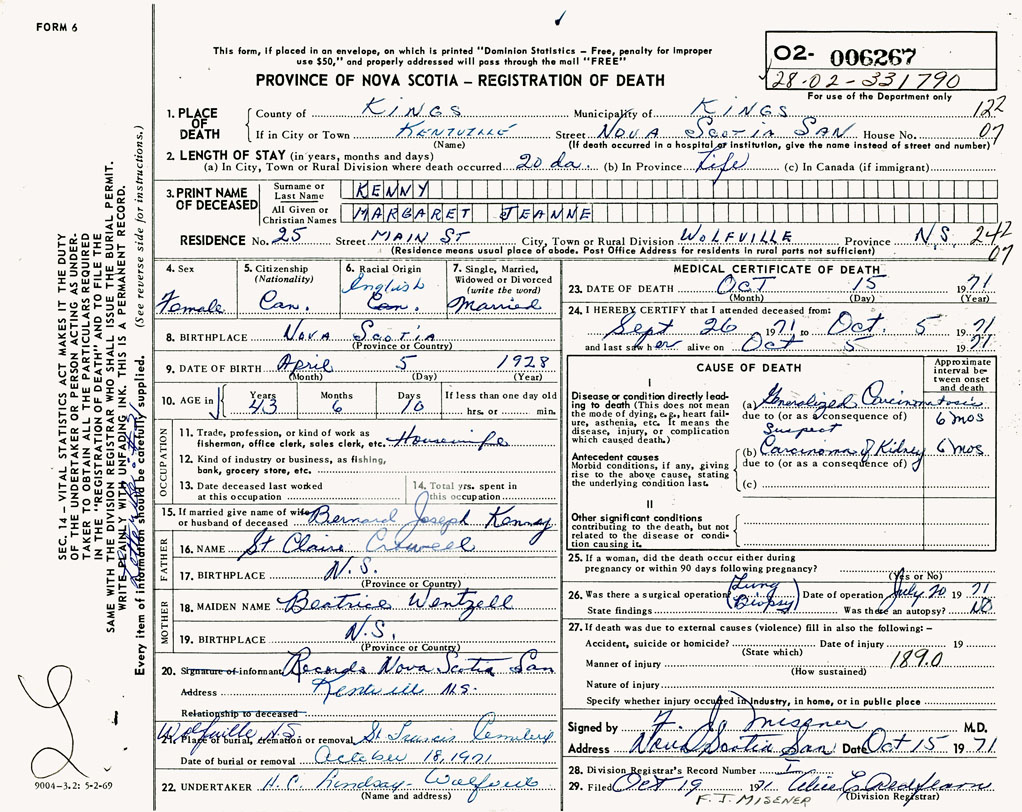 FORM 6
This form, if placed in an envelope, on which is printed "Dominion Statistics – Free, penalty for improper
use $50," and properly addressed will pass through the mail "FREE"
PROVINCE OF NOVA SCOTIA – REGISTRATION OF DEATH
02- 006267
28-02-331790
For use of the Department only
1. PLACE OF DEATH
County of KINGS Municipality of KINGS 122
If in City or Town KENTVILLE Street NOVA SCOTIA SAN House No. 07
(Name) (If death occurred in a hospital or institution, give the name instead of street and number)
2. LENGTH OF STAY (in years, months and days)
(a) In City, Town or Rural Division where death occurred 20 da. (b) In Province Life (c) In Canada (if immigrant)
3. PRINT NAME OF DECEASED
Surname or Last Name KENNY
All Given or Christian Names MARGARET JEANNE
RESIDENCE No. 25 Street MAIN ST City, Town or Rural Division WOLFVILLE Province N.S. 242
07
(Residence means usual place of abode. Post Office Address for residents in rural parts not sufficient)
4. Sex
Female
5. Citizenship
(Nationality)
Can.
6. Racial Origin
English
Can.
7. Single, Married,
Widowed or Divorced
(write the word)
Married
8. BIRTHPLACE Nova Scotia
(Province or Country)
9. DATE OF BIRTH April 5 1928
(Month) (Day) (Year)
10. AGE in
Years Months Days If less than one day old
43 6 10 hrs. or min.
OCCUPATION
11. Trade, profession, or kind of work as
fisherman, office clerk, sales clerk, etc. Housewife
12. Kind of industry or business, as fishing,
bank, grocery store, etc.
13. Date deceased last worked
at this occupation
14. Total yrs. spent in
this occupation
15. If married give name of wife
or husband of deceased Bernard Joseph Kenny
FATHER
16. NAME St Claire
17. BIRTHPLACE N.S.
(Province or Country)
MOTHER
18. MAIDEN NAME Beatrice Wentzell
19. BIRTHPLACE N.S.
(Province or Country)
20. Signature of informant Records Nova Scotia San
Address Kentville N.S.
Relationship to deceased
Wolfville N.S.
21. Place of burial, cremation or removal St Francis Cemetery
Date of burial or removal October 18, 1971
22. UNDERTAKER H.C. Lindsay - Wolfville
(Name and address)
MEDICAL CERTIFICATE OF DEATH
23. DATE OF DEATH OCT 15 1971
(Month) (Day) (Year)
24. I HEREBY CERTIFY that I attended deceased from:
Sept 26 1971 to Oct. 5 1971
and last saw her alive on Oct 5 1971
CAUSE OF DEATH
Approximate
interval be-
tween onset
and death
I
Disease or condition directly lead-
ing to death (This does not mean
the mode of dying, e.g., heart fail-
ure, asthenia, etc. It means the
disease, injury, or complication
which caused death.)
(a) Generalized Carcinomatosis
due to (or as a consequence of) 6 mos
Suspect
Antecedent causes
Morbid conditions, if any, giving
rise to the above cause, stating
the underlying condition last.
(b) Carcinoma of Kidney 6 mos
due to (or as a consequence of)
(c)
II
Other significant conditions
contributing to the death, but not
related to the disease or condi-
tion causing it.
25. If a woman, did the death occur either during
pregnancy or within 90 days following pregnancy?
(Yes or No)
26. Was there a surgical operation? (Lung Biopsy) Date of operation July 20 1971
State findings Was there an autopsy? NO
27. If death was due to external causes (violence) fill in also the following: –
Accident, suicide or homicide? Date of injury 19
(State which)
Manner of injury 189.0
(How sustained)
Nature of injury
Specify whether injury occurred in industry, in home, or in public place
Signed by F. J. Misener M.D.
Address Nova Scotia San Date Oct 15 1971
28. Division Registrar's Record Number
29. Filed Oct 19 1971 Alice E
(Division Registrar)
F. J. MISENER
SEC. 14 – VITAL STATISTICS ACT MAKES IT THE DUTY
OF THE UNDERTAKER OR PERSON ACTING AS UNDER-
TAKER TO OBTAIN ALL THE PARTICULARS REQUIRED
IN THE "REGISTRATION OF DEATH" AND TO FILE THE
SAME WITH THE DIVISION REGISTRAR WHO SHALL ISSUE THE BURIAL PERMIT.
WRITE PLAINLY WITH UNFADING INK. THIS IS A PERMANENT RECORD.
Every item of information should be carefully supplied. (See reverse side for instructions.)
9004-3.2: 5-2-69